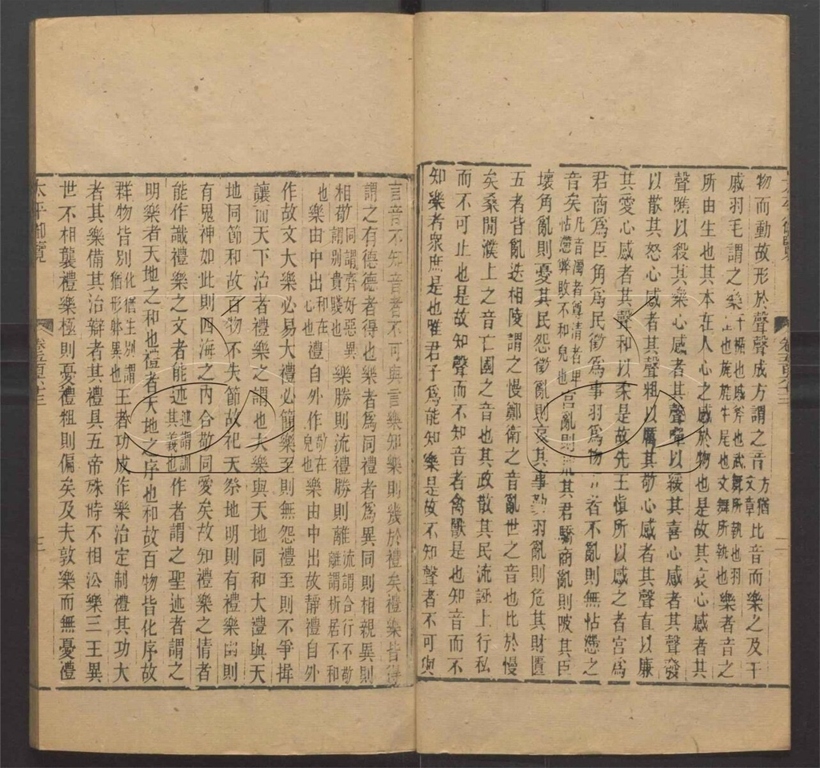 物而動故形於聲聲成方謂之音方猶文章比音而樂之及干
戚羽毛謂之樂干楯也戚斧也武舞所執也羽旄牛尾也文舞所執也樂者音之
所由生也其本在人心之感於物也是故其哀心感者其
聲噍以殺其樂心感者其聲嘽以緩其喜心感者其聲發
以散其怒心感者其聲粗以厲其敬心感者其聲直以廉
其愛心感者其聲和以柔是故先王慎所以感之者宮爲
君商爲臣角爲民徵爲事羽爲物五者不亂則無怗懘之
音矣凡音濁者尊清者卑怗懘弊敗不和皃也宮亂則荒其君驕商亂則陂其臣
壞角亂則憂其民怨徵亂則哀其事勤羽亂則危其財匱
五者皆亂迭相陵謂之慢鄭衛之音亂世之音也比於慢
矣桑間濮上之音亡國之音也其政散其民流誣上行私
而不可止也是故知聲而不知音者禽獸是也知音而不
知樂者衆庶是也唯君子爲能知樂是故不知聲者不可與
言音不知音者不可與言樂知樂則幾於禮矣禮樂皆得
謂之有德德者得也樂者爲同禮者爲異同則相親異則
相敬同謂齊好惡異謂別貴賤也樂勝則流禮勝則離流謂合行不敬離謂析居不和
也樂由中出和在心也禮自外作敬在皃也樂由中出故靜禮自外
作故文大樂必易大禮必簡樂至則無怨禮至則不爭揖
讓而天下治者禮樂之謂也大樂與天地同和大禮與天
地同節和故百物不失節故祀天祭地明則有禮樂幽則
有鬼神如此則四海之內合敬同愛矣故知禮樂之情者
能作識禮樂之文者能述述謂訓其義也作者謂之聖述者謂之
明樂者天地之和也禮者天地之序也和故百物皆化序故
群物皆別化猶生別謂猶形體異也王者功成作樂治定制禮其功大
者其樂備其治辯者其禮具五帝殊時不相沿樂三王異
世不相襲禮樂極則憂禮粗則偏矣及夫敦樂而無憂禮
太平御覽
卷五百六十三
三